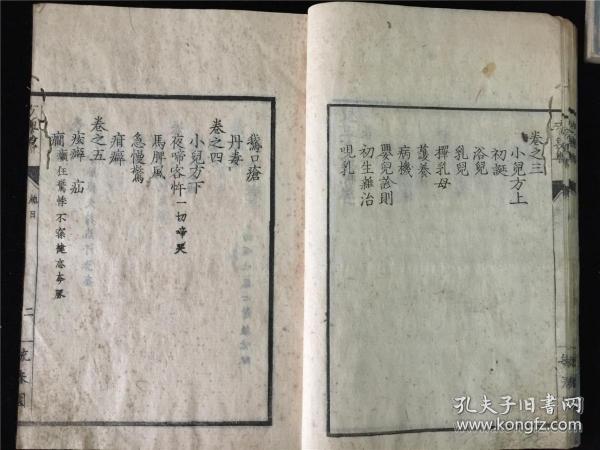 卷之三
小兒方上
初誕
浴兒
乳兒
擇乳母
護養
病機
嬰兒診則
初生雜治
呪乳
鵞口瘡
丹毒
卷之四
小兒方下
夜啼客忤 一切啼哭
馬脾風
急慢驚
疳癖
卷之五
痎癖 疝
癎 癲狂驚悸不寐健忘奔豚
總目
二
孔夫子旧書网
www.kongfz.com